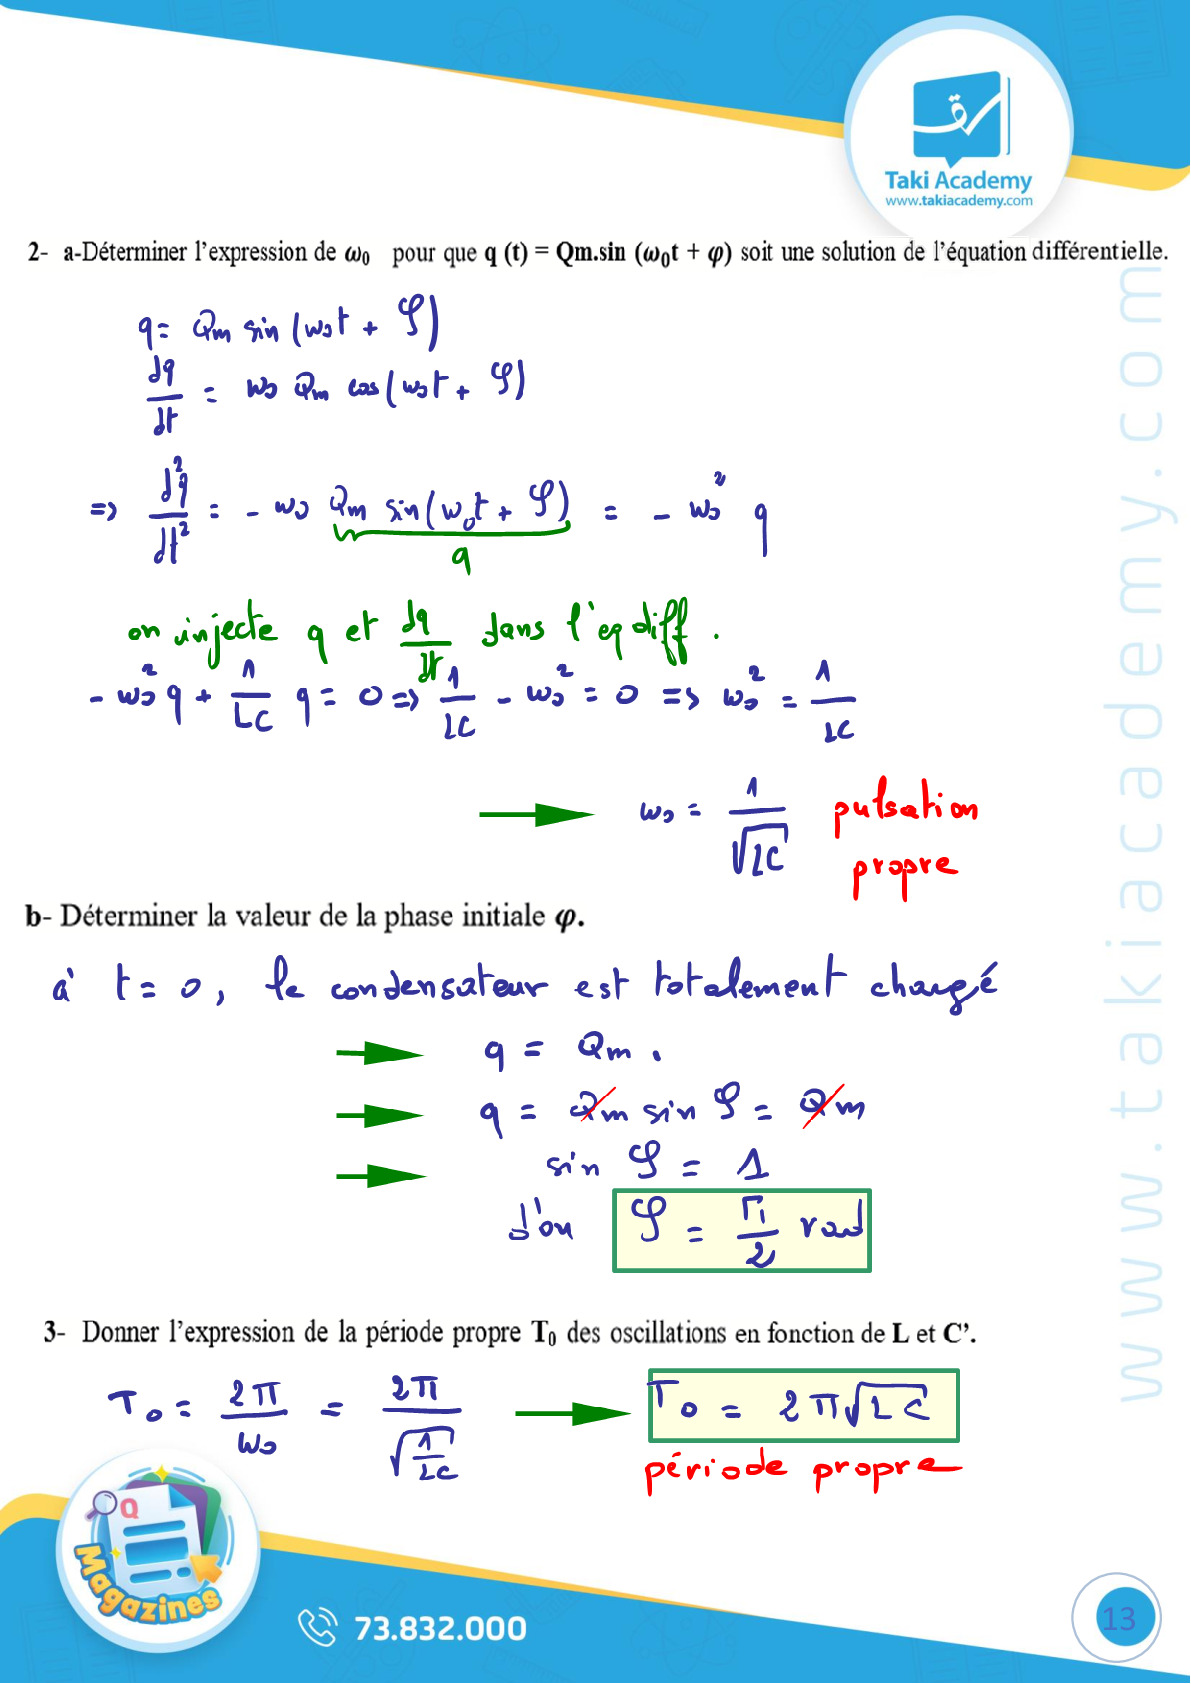 Taki Academy
www.takiacademy.com
2- a-Déterminer l'expression de ω₀ pour que q (t) = Qm.sin (ω₀t + φ) soit une solution de l'équation différentielle.
q = Qm sin (ω₀t + φ)
dq/dt = ω₀ Qm cos (ω₀t + φ)
=> d²q/dt² = - ω₀ Qm sin (ω₀t + φ) = - ω₀² q
q
on injecte q et dq/dt dans l'eq diff.
- ω₀² q + 1/LC q = 0 => 1/LC - ω₀² = 0 => ω₀² = 1/LC
ω₀ = 1/√LC pulsation
propre
b- Déterminer la valeur de la phase initiale φ.
à t = 0, le condensateur est totalement chargé
q = Qm.
q = Qm sin φ = Qm
sin φ = 1
d'où φ = π/2 rad
3- Donner l'expression de la période propre T₀ des oscillations en fonction de L et C'.
T₀ = 2π/ω₀ = 2π/√(1/LC) T₀ = 2π√LC
période propre
Q
Magazines
73.832.000
13
www.takiacademy.com